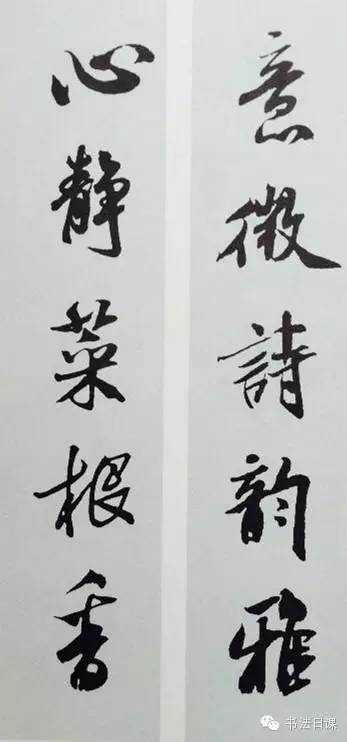 意微詩韵雅
心靜菜根香
书法日课